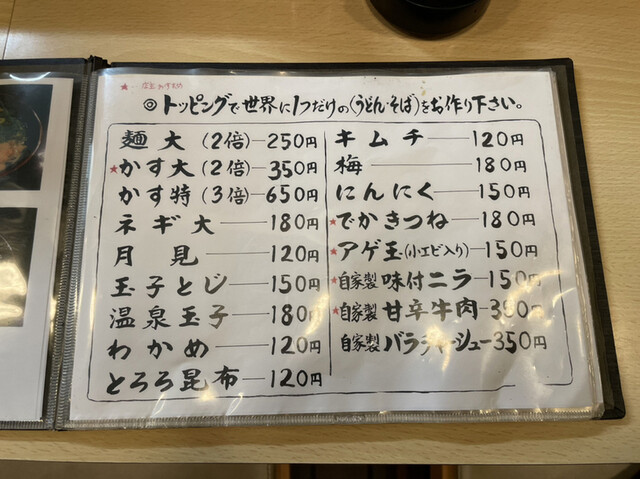 ◎トッピングで世界に1つだけの(うどん・そば)をお作り下さい。
麺大(2倍)―250円
★かす大(2倍)―350円
かす特(3倍)―650円
ネギ大―180円
月見―120円
玉子とじ―150円
温泉玉子―180円
わかめ―120円
とろろ昆布―120円
キムチ―120円
梅―180円
にんにく―150円
★でかきつね―180円
★アゲ玉(小エビ入り)―150円
自家製 味付ニラ―150円
★自家製 甘辛牛肉―380円
自家製 バラチャーシュー350円